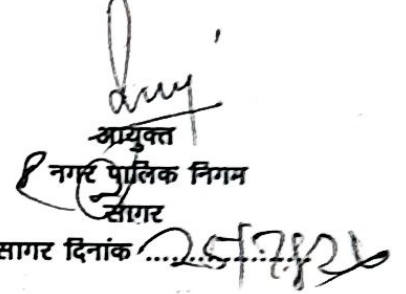 आयुक्त
नगर पालिक निगम
सागर
सागर दिनांक ..................